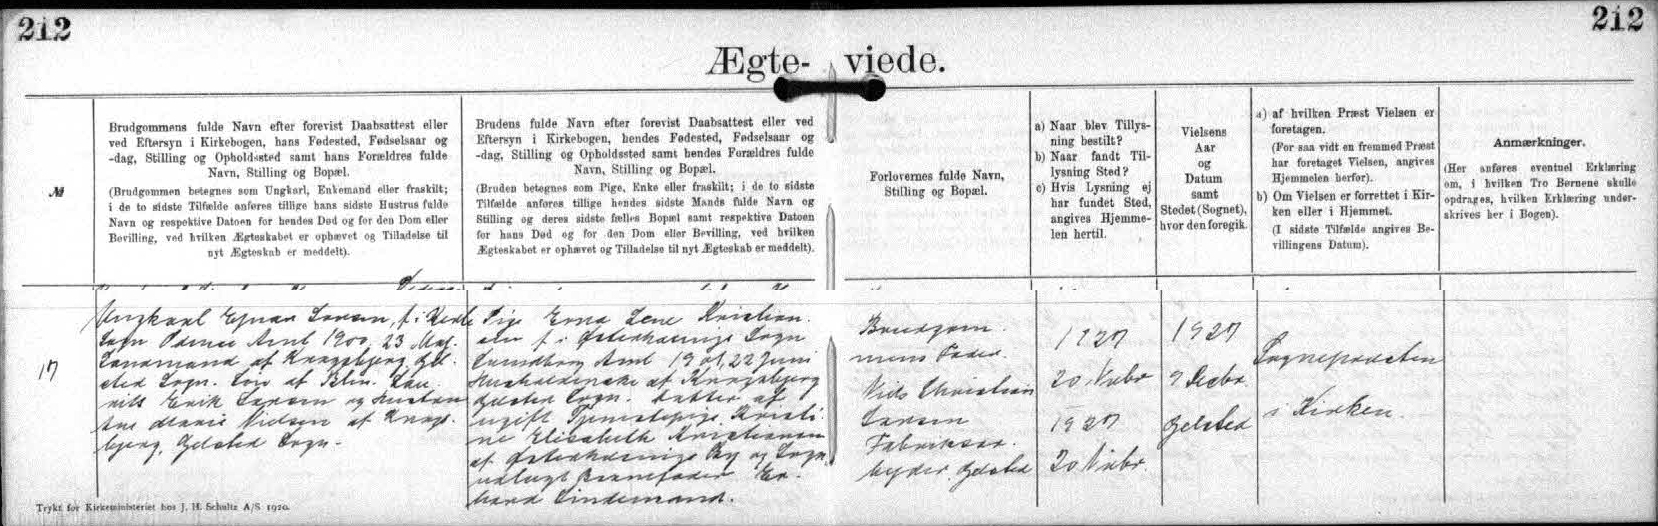 212
212
Ægte- viede.
№
Brudgommens fulde Navn efter forevist Daabsattest eller
ved Eftersyn i Kirkebogen, hans Fødested, Fødselsaar og
-dag, Stilling og Opholdssted samt hans Forældres fulde
Navn, Stilling og Bopæl.
(Brudgommen betegnes som Ungkarl, Enkemand eller fraskilt;
i de to sidste Tilfælde anføres tillige hans sidste Hustrus fulde
Navn og respektive Datoen for hendes Død og for den Dom eller
Bevilling, ved hvilken Ægteskabet er ophævet og Tilladelse til
nyt Ægteskab er meddelt).
Brudens fulde Navn efter forevist Daabsattest eller ved
Eftersyn i Kirkebogen, hendes Fødested, Fødselsaar og
-dag, Stilling og Opholdssted samt hendes Forældres fulde
Navn, Stilling og Bopæl.
(Bruden betegnes som Pige, Enke eller fraskilt; i de to sidste
Tilfælde anføres tillige hendes sidste Mands fulde Navn og
Stilling og deres sidste fælles Bopæl samt respektive Datoen
for hans Død og for den Dom eller Bevilling, ved hvilken
Ægteskabet er ophævet og Tilladelse til nyt Ægteskab er meddelt).
Forlovernes fulde Navn,
Stilling og Bopæl.
a) Naar blev Tillys-
ning bestilt?
b) Naar fandt Til-
lysning Sted?
c) Hvis Lysning ej
har fundet Sted,
angives Hjemme-
len hertil.
Vielsens
Aar
og
Datum
samt
Stedet (Sognet),
hvor den foregik.
a) af hvilken Præst Vielsen er
foretagen.
(For saa vidt en fremmed Præst
har foretaget Vielsen, angives
Hjemmelen herfor).
b) Om Vielsen er forrettet i Kir-
ken eller i Hjemmet.
(I sidste Tilfælde angives Be-
villingens Datum).
Anmærkninger.
(Her anføres eventuel Erklæring
om, i hvilken Tro Børnene skulle
opdrages, hvilken Erklæring under-
skrives her i Bogen).
17
Ungkarl Ejnar Larsen, f. i
Sogn Odense Amt 1900, 23 Maj.
Landmand af Kragsbjerg, Gel-
sted Sogn. Søn af
Erik Larsen og Hustru
Ane Marie Nielsen af Krags-
bjerg, Gelsted Sogn.
Pige Erna Lene Kristian-
sen f. i Østerhæsinge Sogn
Svendborg Amt 1901, 22 Juni
Husholderske af Kragsbjerg
Gelsted Sogn. Datter af
ugift Tjenestepige Kristi-
ne Elisabeth Kristiansen
af Østerhæsinge By og Sogn
udlagt Barnefader Er-
hard Lindemand.
Brudgom-
mens Fader.
Niels Christian
Larsen
Fabriksar-
bejder, Gelsted
1927
20 Novbr
1927
20 Novbr.
1927
9 Decbr
Gelsted
Sognepræsten
i Kirken.
Trykt for Kirkeministeriet hos J. H. Schultz A/S 1920.